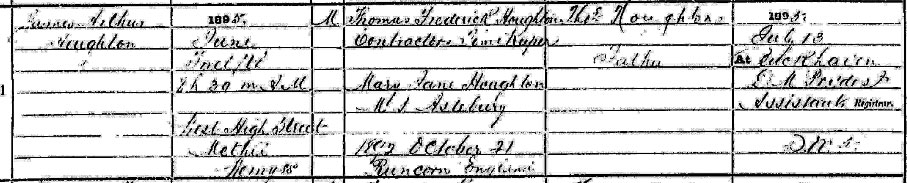 James Arthur
Houghton
1
1895.
June
First
8 h 30 m A M
West High Street
Methil
Wemyss
M
Thomas Frederick Houghton
Contractors Timekeeper
Mary Jane Houghton
M. S. Astbury
1892 October 21
Runcorn England
Thos Houghton
Father
1895.
July 13
At Buckhaven
Assistant Registrar.